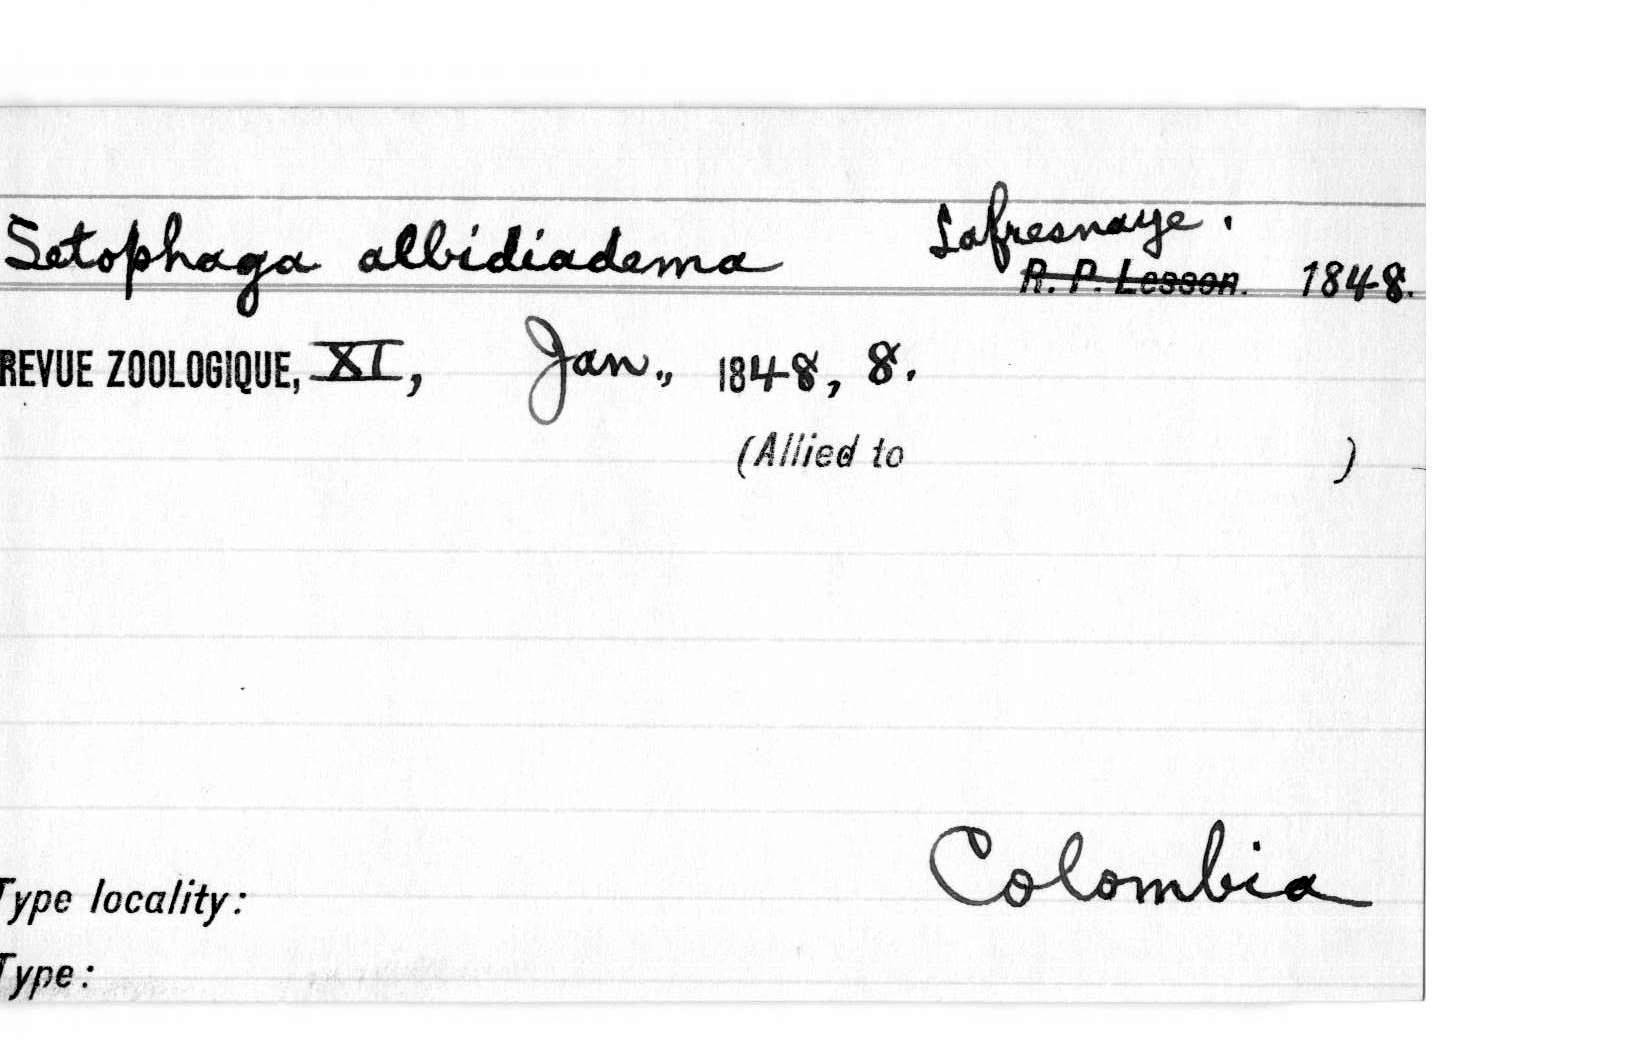 Setophaga albidiadema Lafresnaye.
R. P. Lesson. 1848.
REVUE ZOOLOGIQUE, XI, Jan., 1848, 8.
(Allied to )
Colombia
Type locality:
Type: